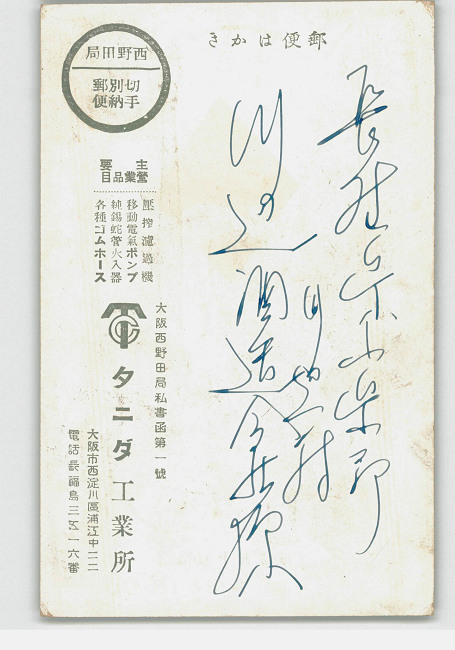 郵便はかき
川辺酒造会社様
西野田局
切手別納郵便
主要營業品目
壓搾濾過機
移動電氣ポンプ
純錫蛇管火入器
各種ゴムホース
大阪西野田局私書函第一號
タニダ工業所
大阪市西淀川區浦江中二二
電話長福島三五一六番